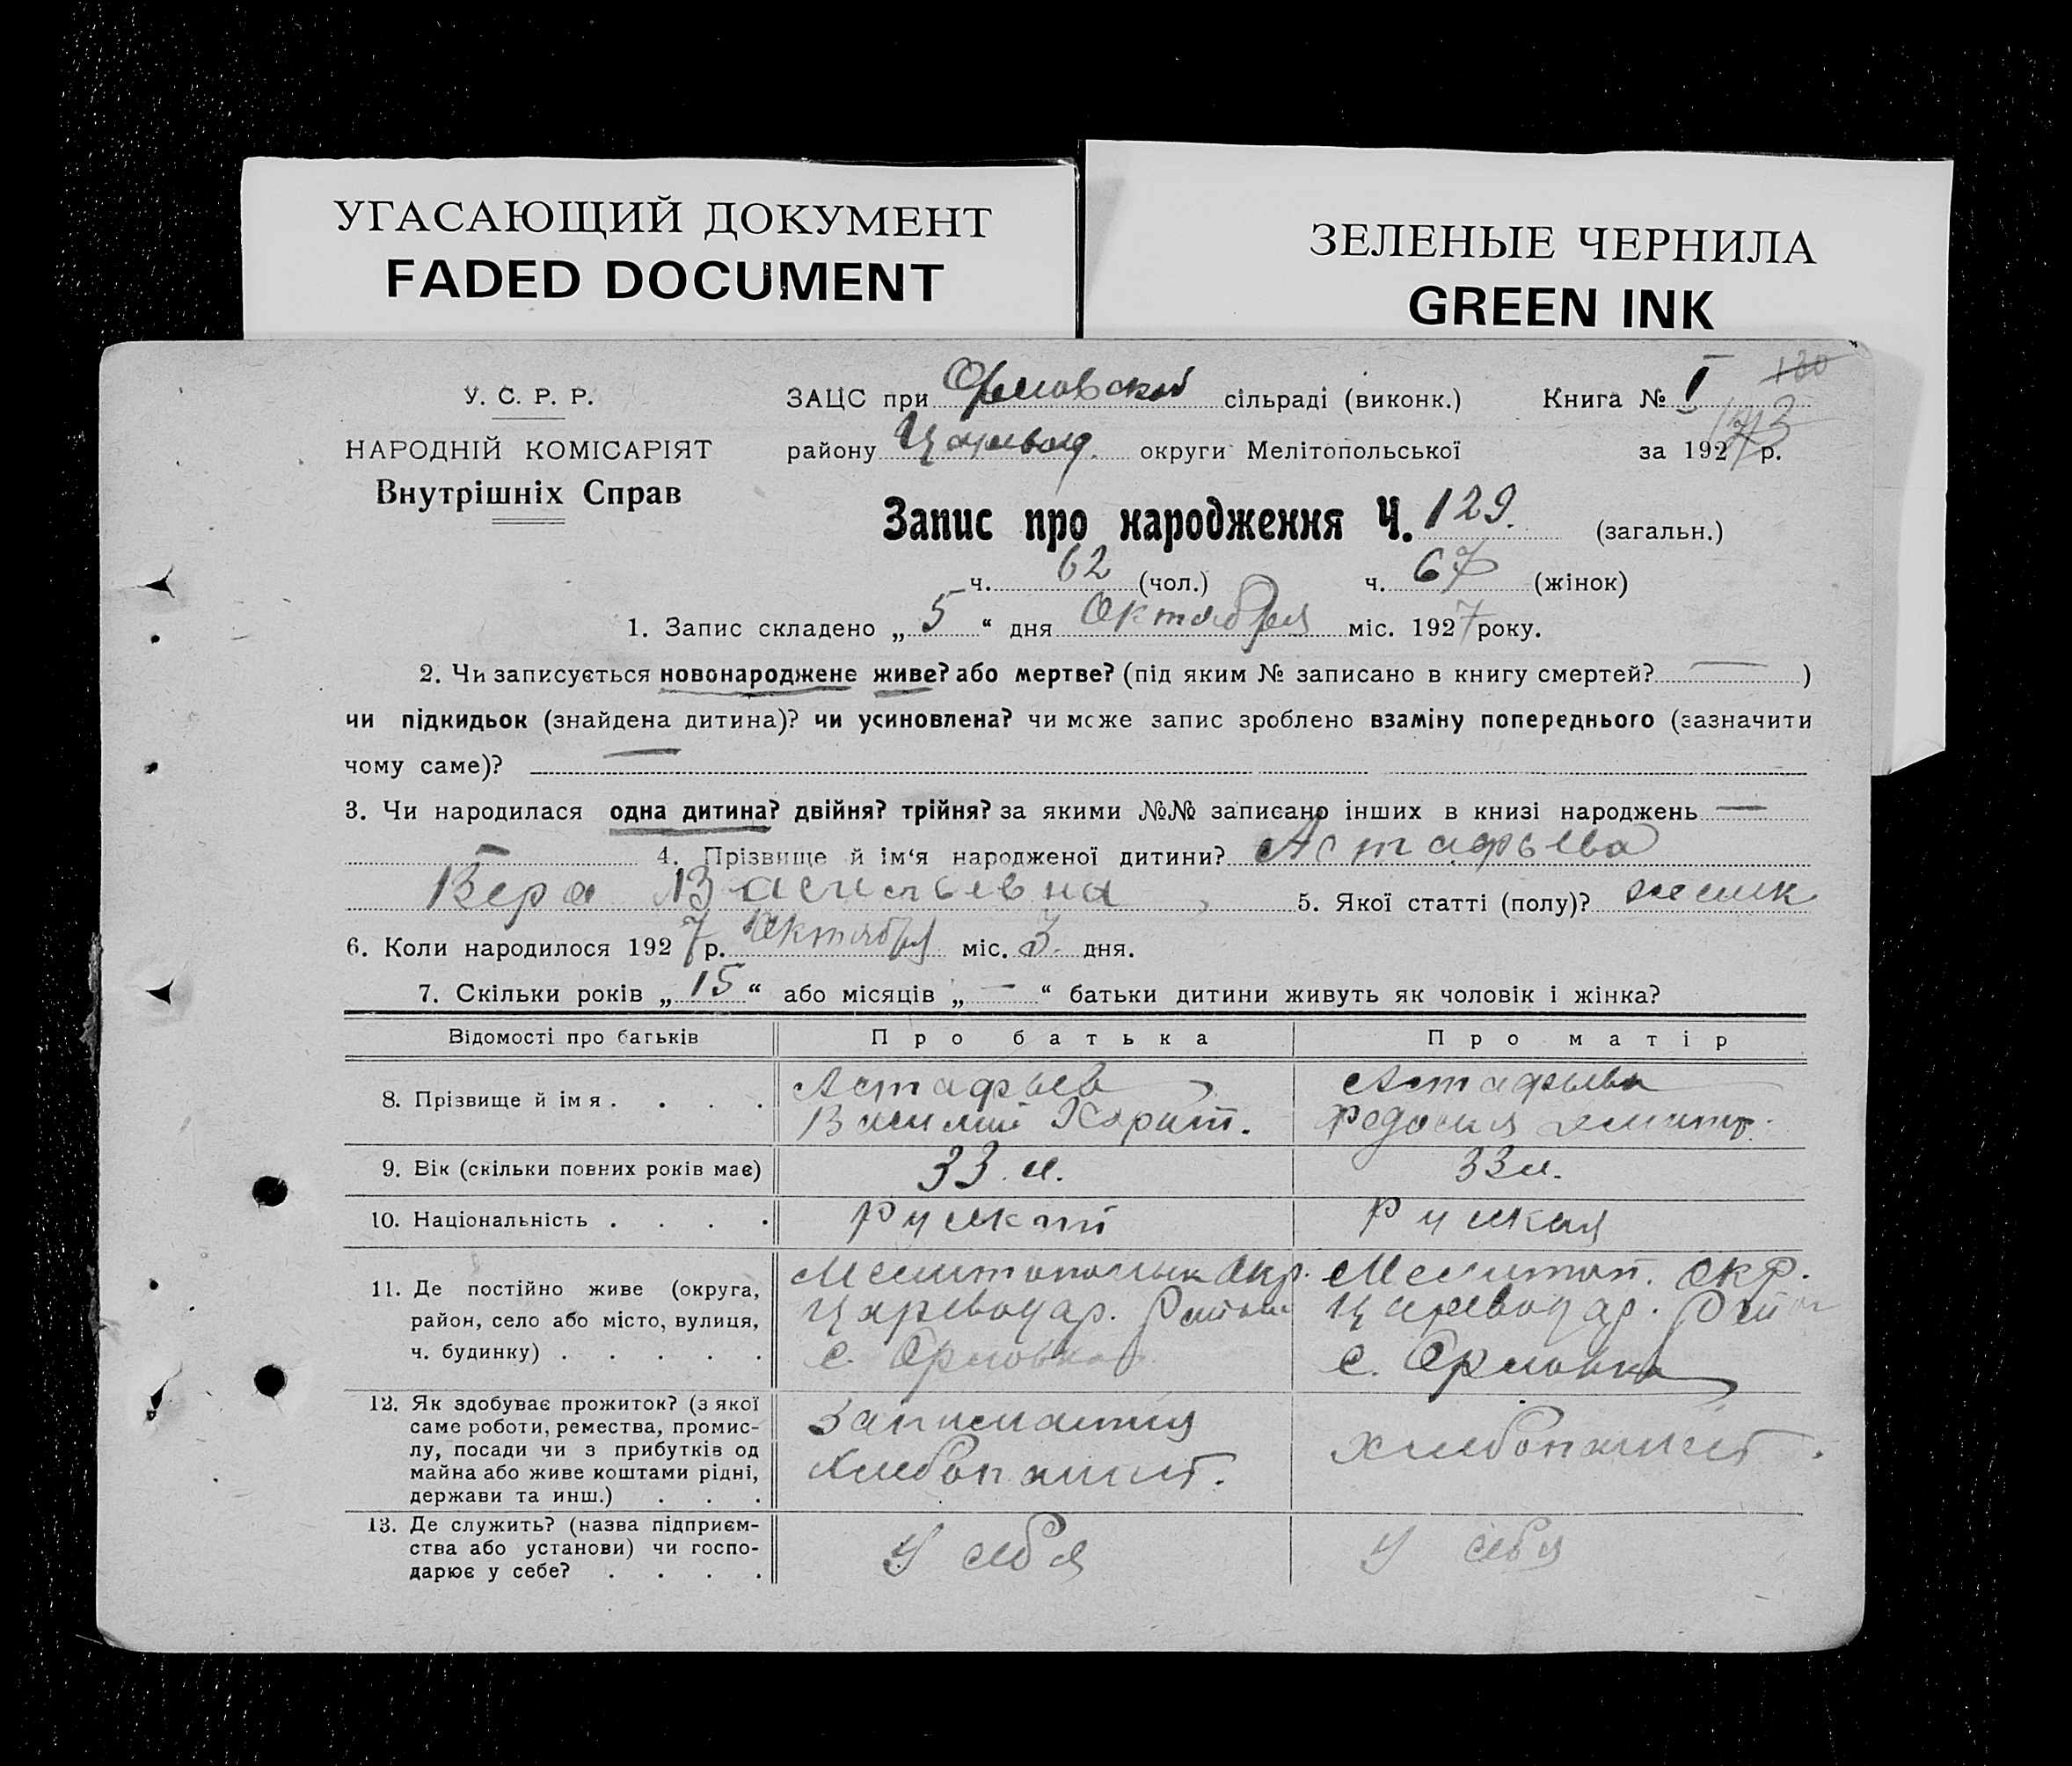 УГАСАЮЩИЙ ДОКУМЕНТ
FADED DOCUMENT
ЗЕЛЕНЫЕ ЧЕРНИЛА
GREEN INK
У. С. Р. Р.
НАРОДНІЙ КОМІСАРІЯТ
Внутрішніх Справ
ЗАЦС при Орловской сільраді (виконк.) Книга № I
району Царевод. округи Мелітопольської за 1927 р.
Запис про народження Ч. 129. (загальн.)
ч. 62 (чол.) ч. 67 (жінок)
1. Запис складено „ 5 “ дня Октября міс. 1927 року.
2. Чи записується новонароджене живе? або мертве? (під яким № записано в книгу смертей? — )
чи підкидьок (знайдена дитина)? чи усиновлена? чи може запис зроблено взаміну попереднього (зазначити
чому саме)? —
3. Чи народилася одна дитина? двійня? трійня? за якими №№ записано інших в книзі народжень —
— 4. Прізвище й ім‘я народженої дитини? Астафьева
Вера Васильевна 5. Якої статті (полу)? женск
6. Коли народилося 1927 р. Октября міс. 3 дня.
7. Скільки років „ 15 “ або місяців „ — “ батьки дитини живуть як чоловік і жінка?
Відомості про батьків Про батька Про матір
8. Прізвище й імя . . . . Астафьев Астафьева
Василий Харит. Федосия Дмитр.
9. Вік (скільки повних років має) 33 л. 33 л.
10. Національність . . . . Руский Руская
11. Де постійно живе (округа, Мелитопольск Окр. Мелитоп. Окр.
район, село або місто, вулиця, Цареводар. Район Цареводар. Район
ч. будинку) . . . . . с. Орловка с. Орловка
12. Як здобуває прожиток? (з якої
саме роботи, ремества, промис-
лу, посади чи з прибутків од
майна або живе коштами рідні,
держави та инш.) . . .
Занимается Хлебопашест. Хлебопашест.
13. Де служить? (назва підприєм-
ства або установи) чи госпо-
дарює у себе? . . . .
У себя У себя